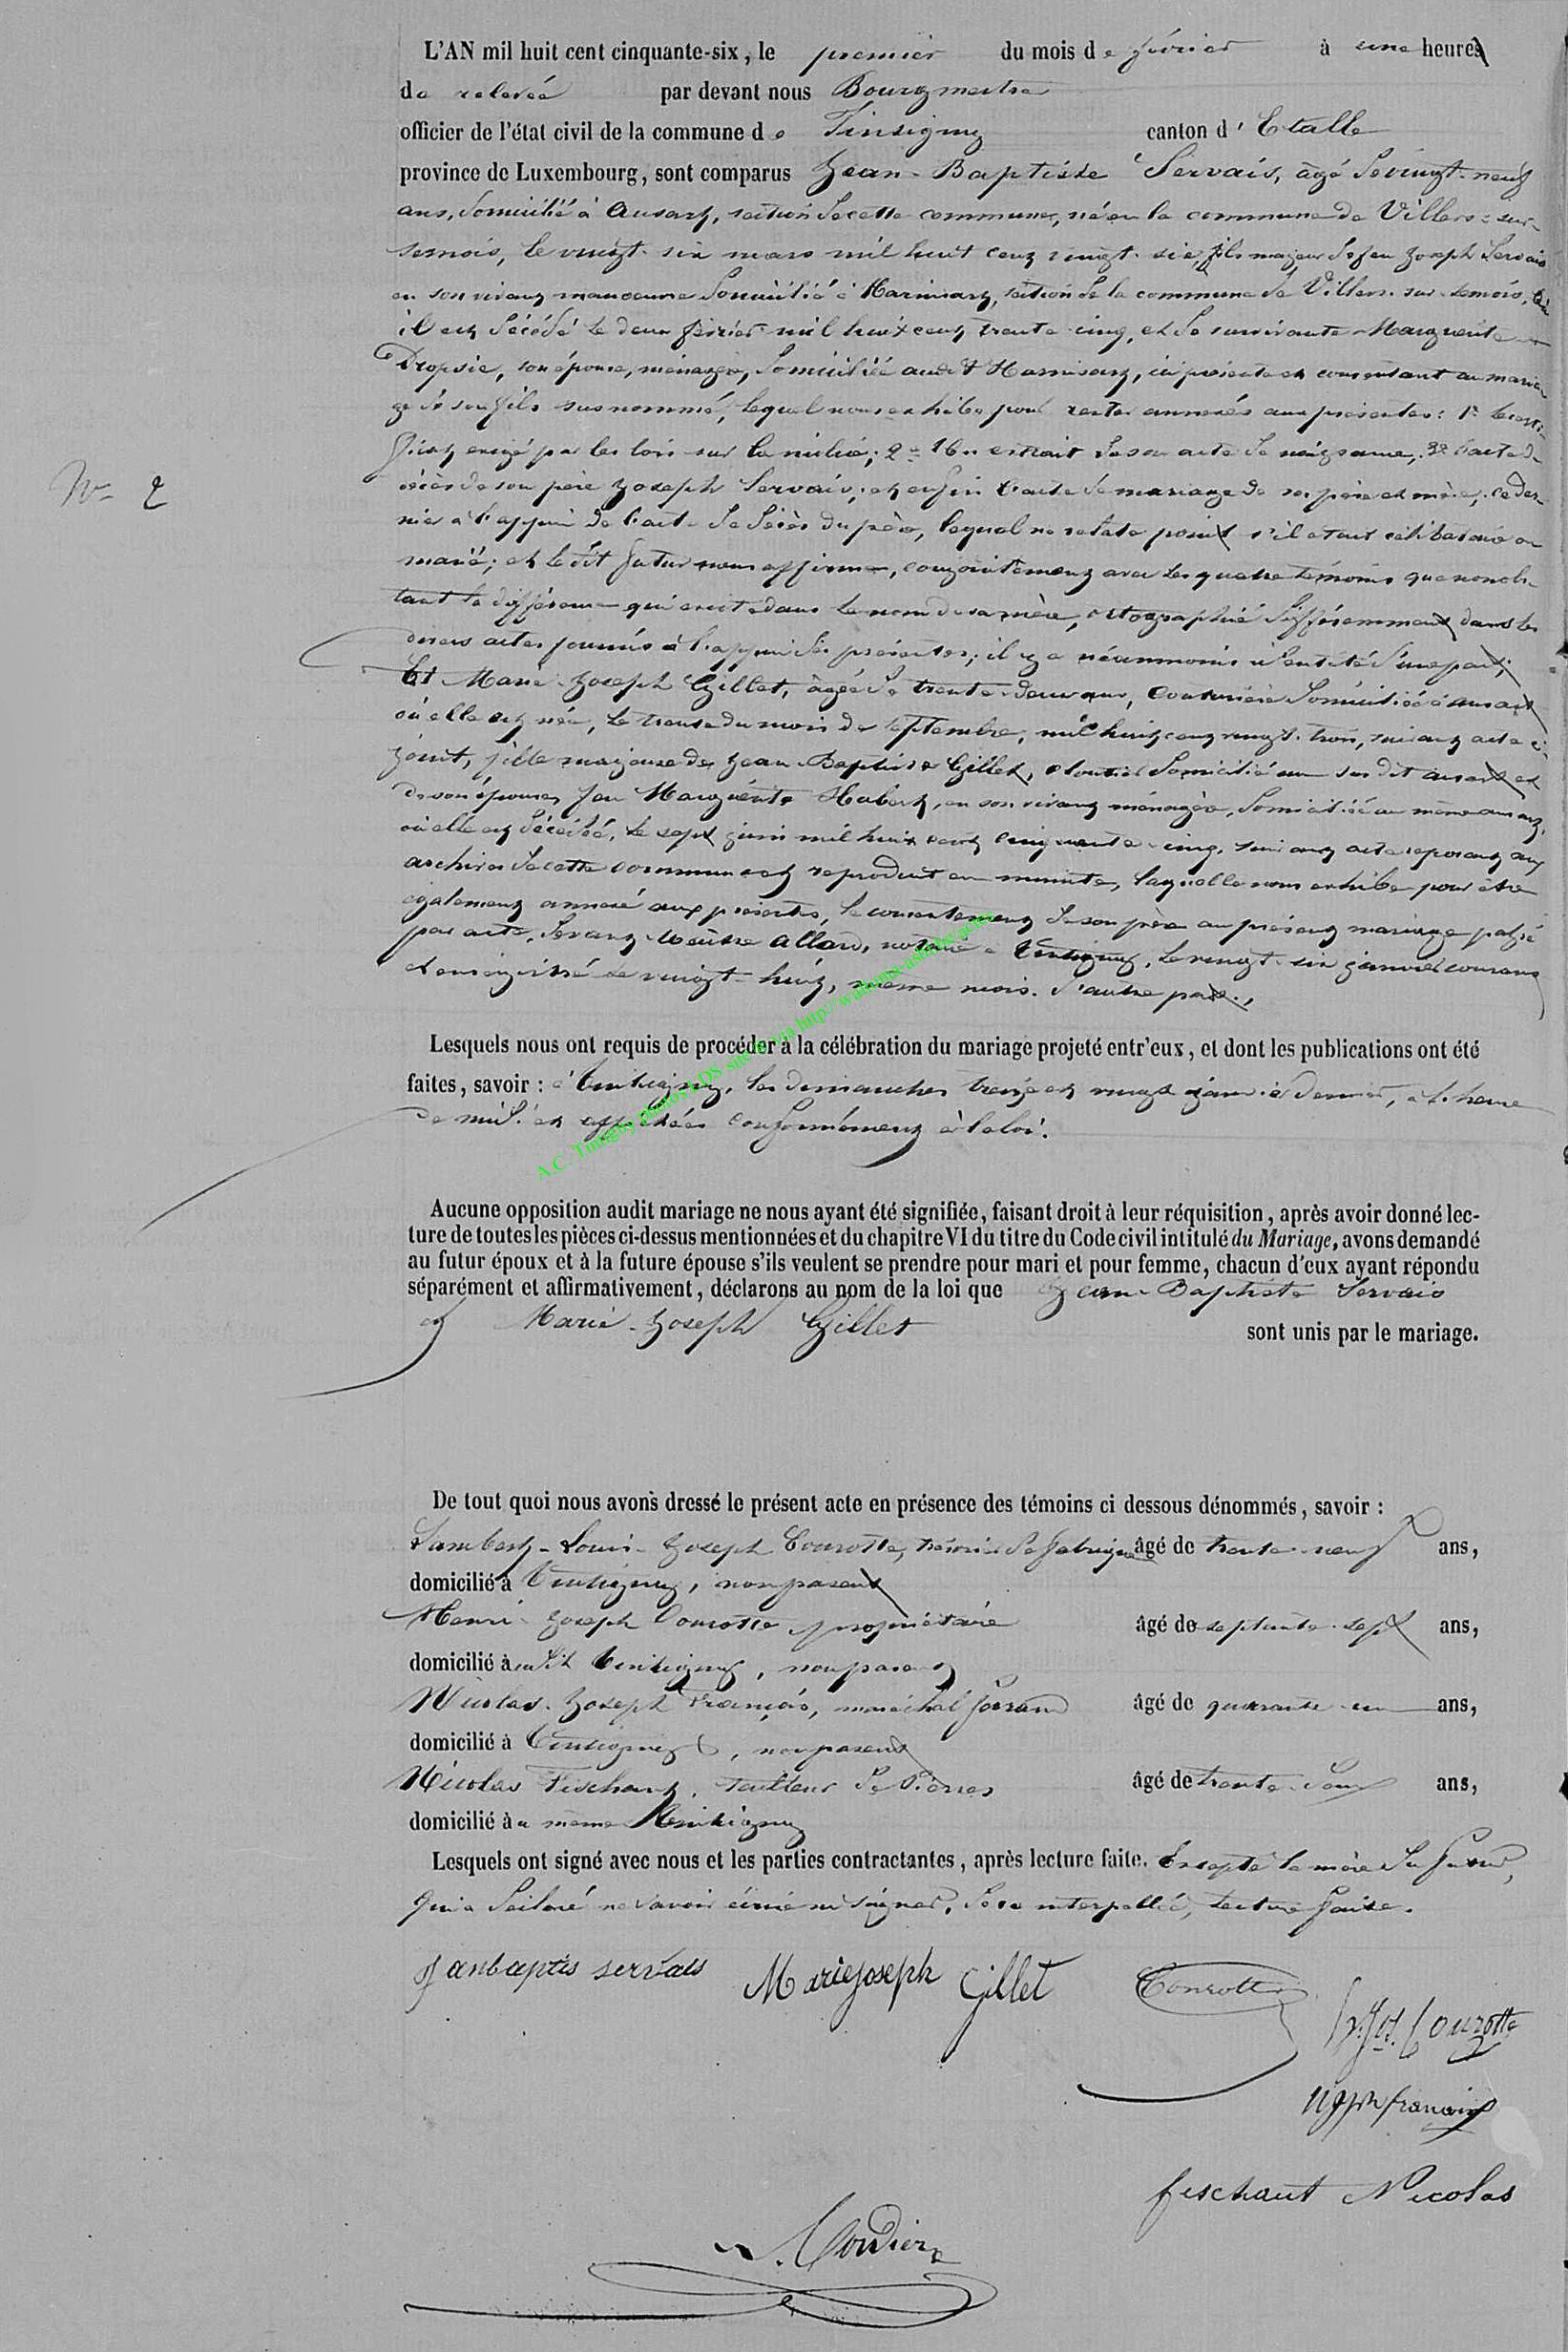 L'AN mil huit cent cinquante-six, le premier du mois de février à une heures
de relevée par devant nous Bourgmestre
officier de l'état civil de la commune de Tintigny canton d'Etalle
province de Luxembourg, sont comparus Jean-Baptiste Servais, âgé de vingt-neuf
ans, domicilié à Ansart, section de cette commune, né en la commune de Villers-sur-
semois, le vingt-six mars mil huit cent vingt-six, fils majeur de feu Joseph Servais
en son vivant manoeuvre domicilié à Harinsart, section de la commune de Villers-sur-semois, où
il est décédé le deux février mil huit cent trente-cinq, et de survivante Marguerite
Dropsie, son épouse, ménagère, domiciliée audit Harinsart, ici présente et consentant au maria-
ge de son fils susnommé, lequel nous exhibe pour rester annexés aux présentes: 1° le certi-
ficat exigé par les lois sur la milice; 2° un extrait de son acte de naissance; 3° l'acte de
décès de son père Joseph Servais; et enfin l'acte de mariage de ses père et mère; ce der-
nier à l'appui de l'acte de décès du père, lequel ne relate point s'il était célibataire ou
marié; et le dit futur nous affirme, conjointement avec les quatre témoins que nonobs-
tant la différence qui existe dans le nom de sa mère, ortographié différemment dans les
divers actes fournis à l'appui des présentes; il y a néanmoins identité d'une part;
Et Marie-Joseph Gillet, âgée de trente-deux ans, couturière domiciliée à Ansart
où elle est née, le trente du mois de septembre, mil huit cent vingt-trois, suivant acte ci-
joint, fille majeure de Jean-Baptiste Gillet, cloutier domicilié au susdit Ansart et
de son épouse, feu Marguerite Hubert, en son vivant ménagère, domiciliée au même Ansart,
où elle est décédée, le sept juin mil huit cent cinquante-cinq, suivant acte reposant aux
archives de cette commune et reproduit en minute, laquelle nous exhibe pour être
également annexé aux présentes, le consentement de son père au présent mariage passé
par acte, devant Maître Allard, notaire à Tintigny, le vingt-six janvier courant
et enregistré le vingt-huit, même mois. d'autre part.,
Lesquels nous ont requis de procéder à la célébration du mariage projeté entr'eux, et dont les publications ont été
faites, savoir : à Tintigny, les dimanches treize et vingt janvier dernier, à l'heure
de midi et affichées conformément à la loi.
Aucune opposition audit mariage ne nous ayant été signifiée, faisant droit à leur réquisition, après avoir donné lec-
ture de toutes les pièces ci-dessus mentionnées et du chapitre VI du titre du Code civil intitulé du Mariage, avons demandé
au futur époux et à la future épouse s'ils veulent se prendre pour mari et pour femme, chacun d'eux ayant répondu
séparément et affirmativement, déclarons au nom de la loi que Jean-Baptiste Servais
et Marie-Joseph Gillet sont unis par le mariage.
De tout quoi nous avons dressé le présent acte en présence des témoins ci dessous dénommés, savoir :
Lambert-Louis-Joseph Courotte, trésorier de fabrique âgé de trente-neuf ans,
domicilié à Tintigny, non parent
Henri-Joseph Courotte propriétaire âgé de septante-sept ans,
domicilié audit Tintigny, non parent
Nicolas-Joseph François, maréchal ferrant âgé de quarante-un ans,
domicilié à Tintigny, non parent
Nicolas Feschaut, tailleur de pierres âgé de trente-deux ans,
domicilié au même Tintigny
Lesquels ont signé avec nous et les parties contractantes, après lecture faite. Excepté la mère du futur,
qui a déclaré ne savoir écrire ni signer, de ce interpellée, lecture faite.
Janbaptis servais Marie joseph Gillet Courotte
h. Jos. Courotte
Njph françois
feschaut Nicolas
N. Cordier
N° 2
A.C. Tintigny photos LDS site
via http://